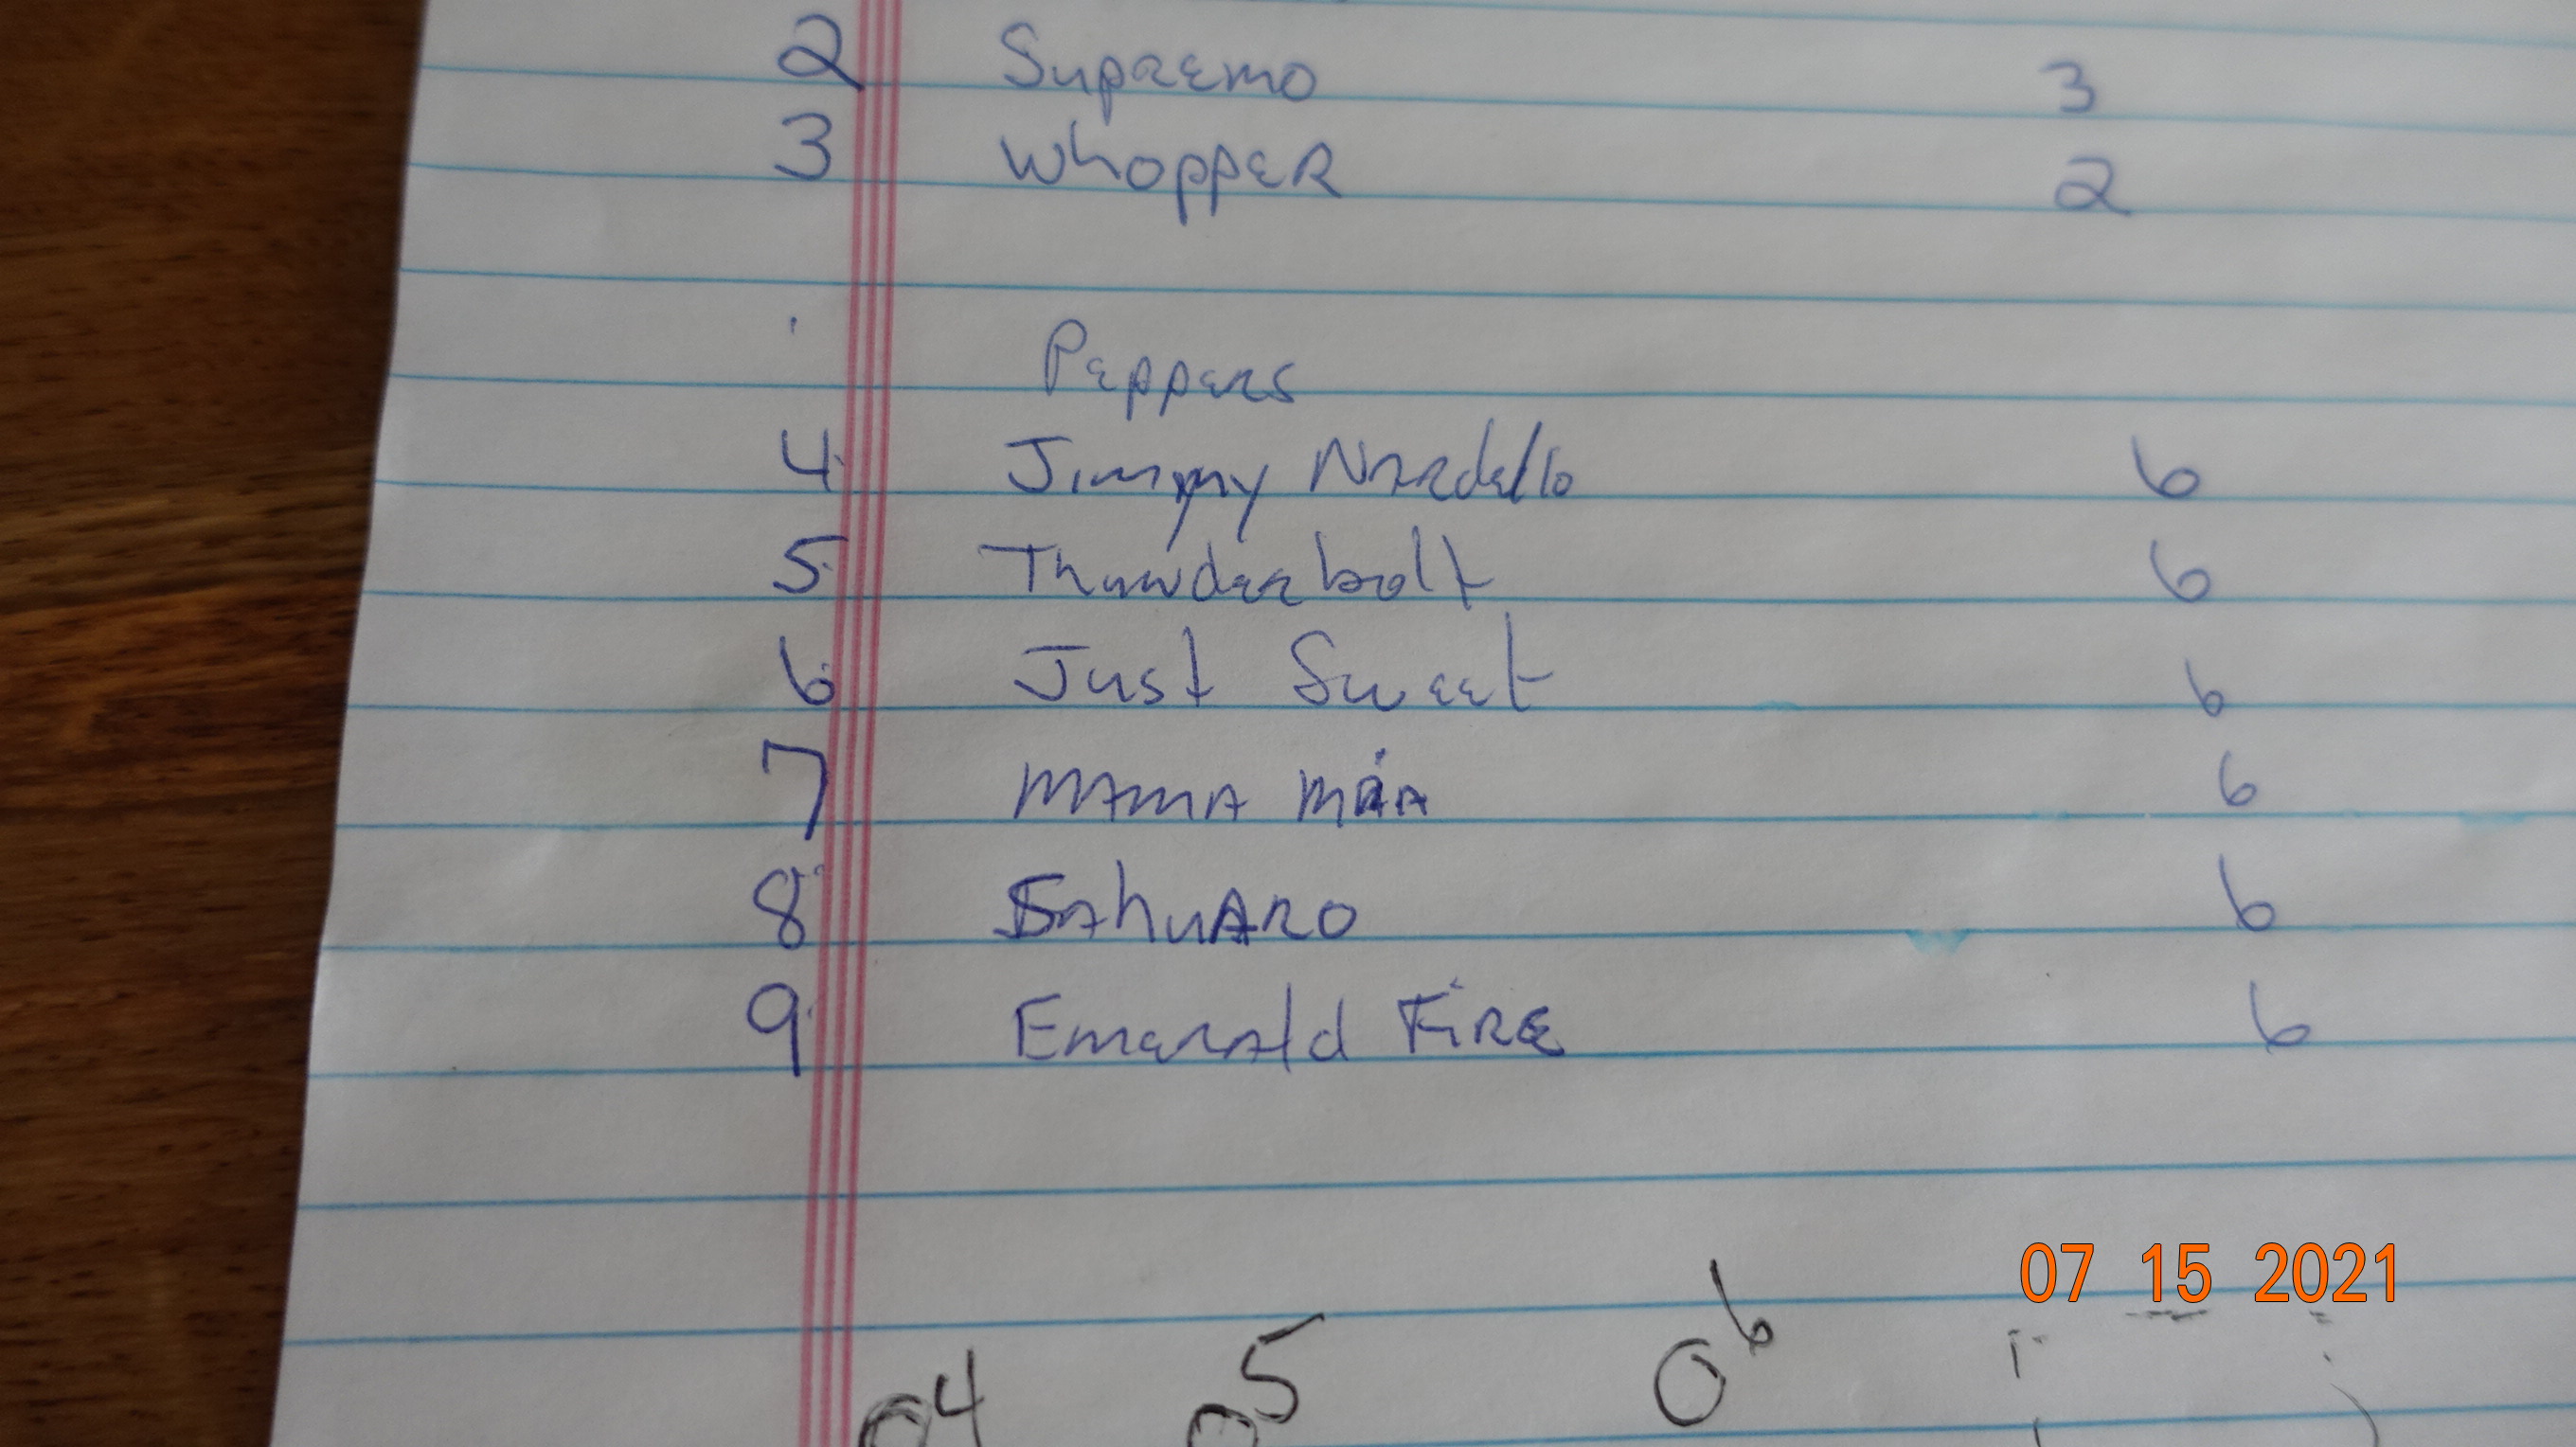 2 Supremo 3
3 Whopper 2
Peppers
4 Jimmy Nardello 6
5 Thunderbolt 6
6 Just Sweet 6
7 MAMA MiA 6
8 SAhuARO 6
9 EmerAld FiRE 6
07 15 2021
6
5
4